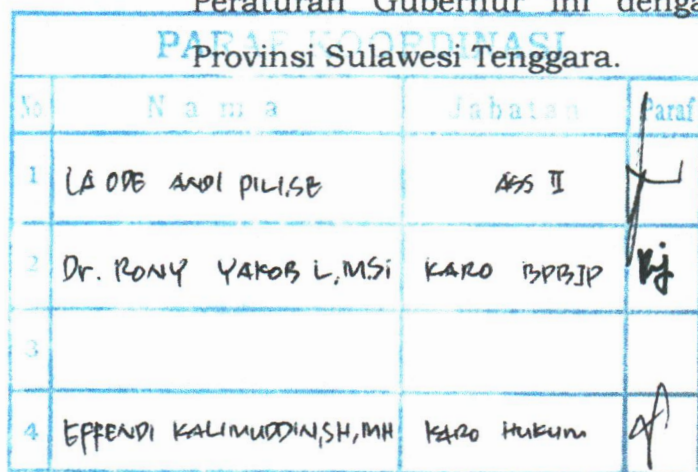 Peraturan Gubernur ini denga
PARAF KOORDINASI
Provinsi Sulawesi Tenggara.
No Nama Jabatan Paraf
1 LA ODE ANDI PILI,SE ASS II
2 Dr. RONY YAKOB L, MSi KARO BPBJP
3
4 EFFENDI KALIMUDDIN,SH,MH KARO HUKUM